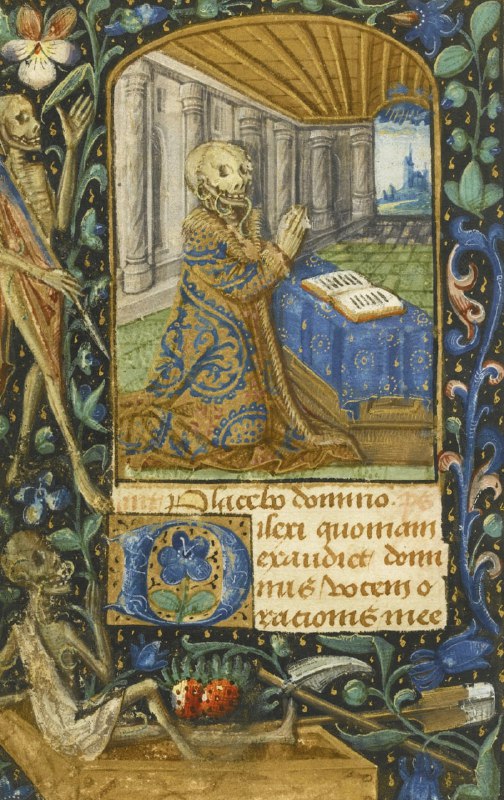 Placebo domino.
Dilexi quoniam
exaudiet domi
nus vocem o
rationis mee